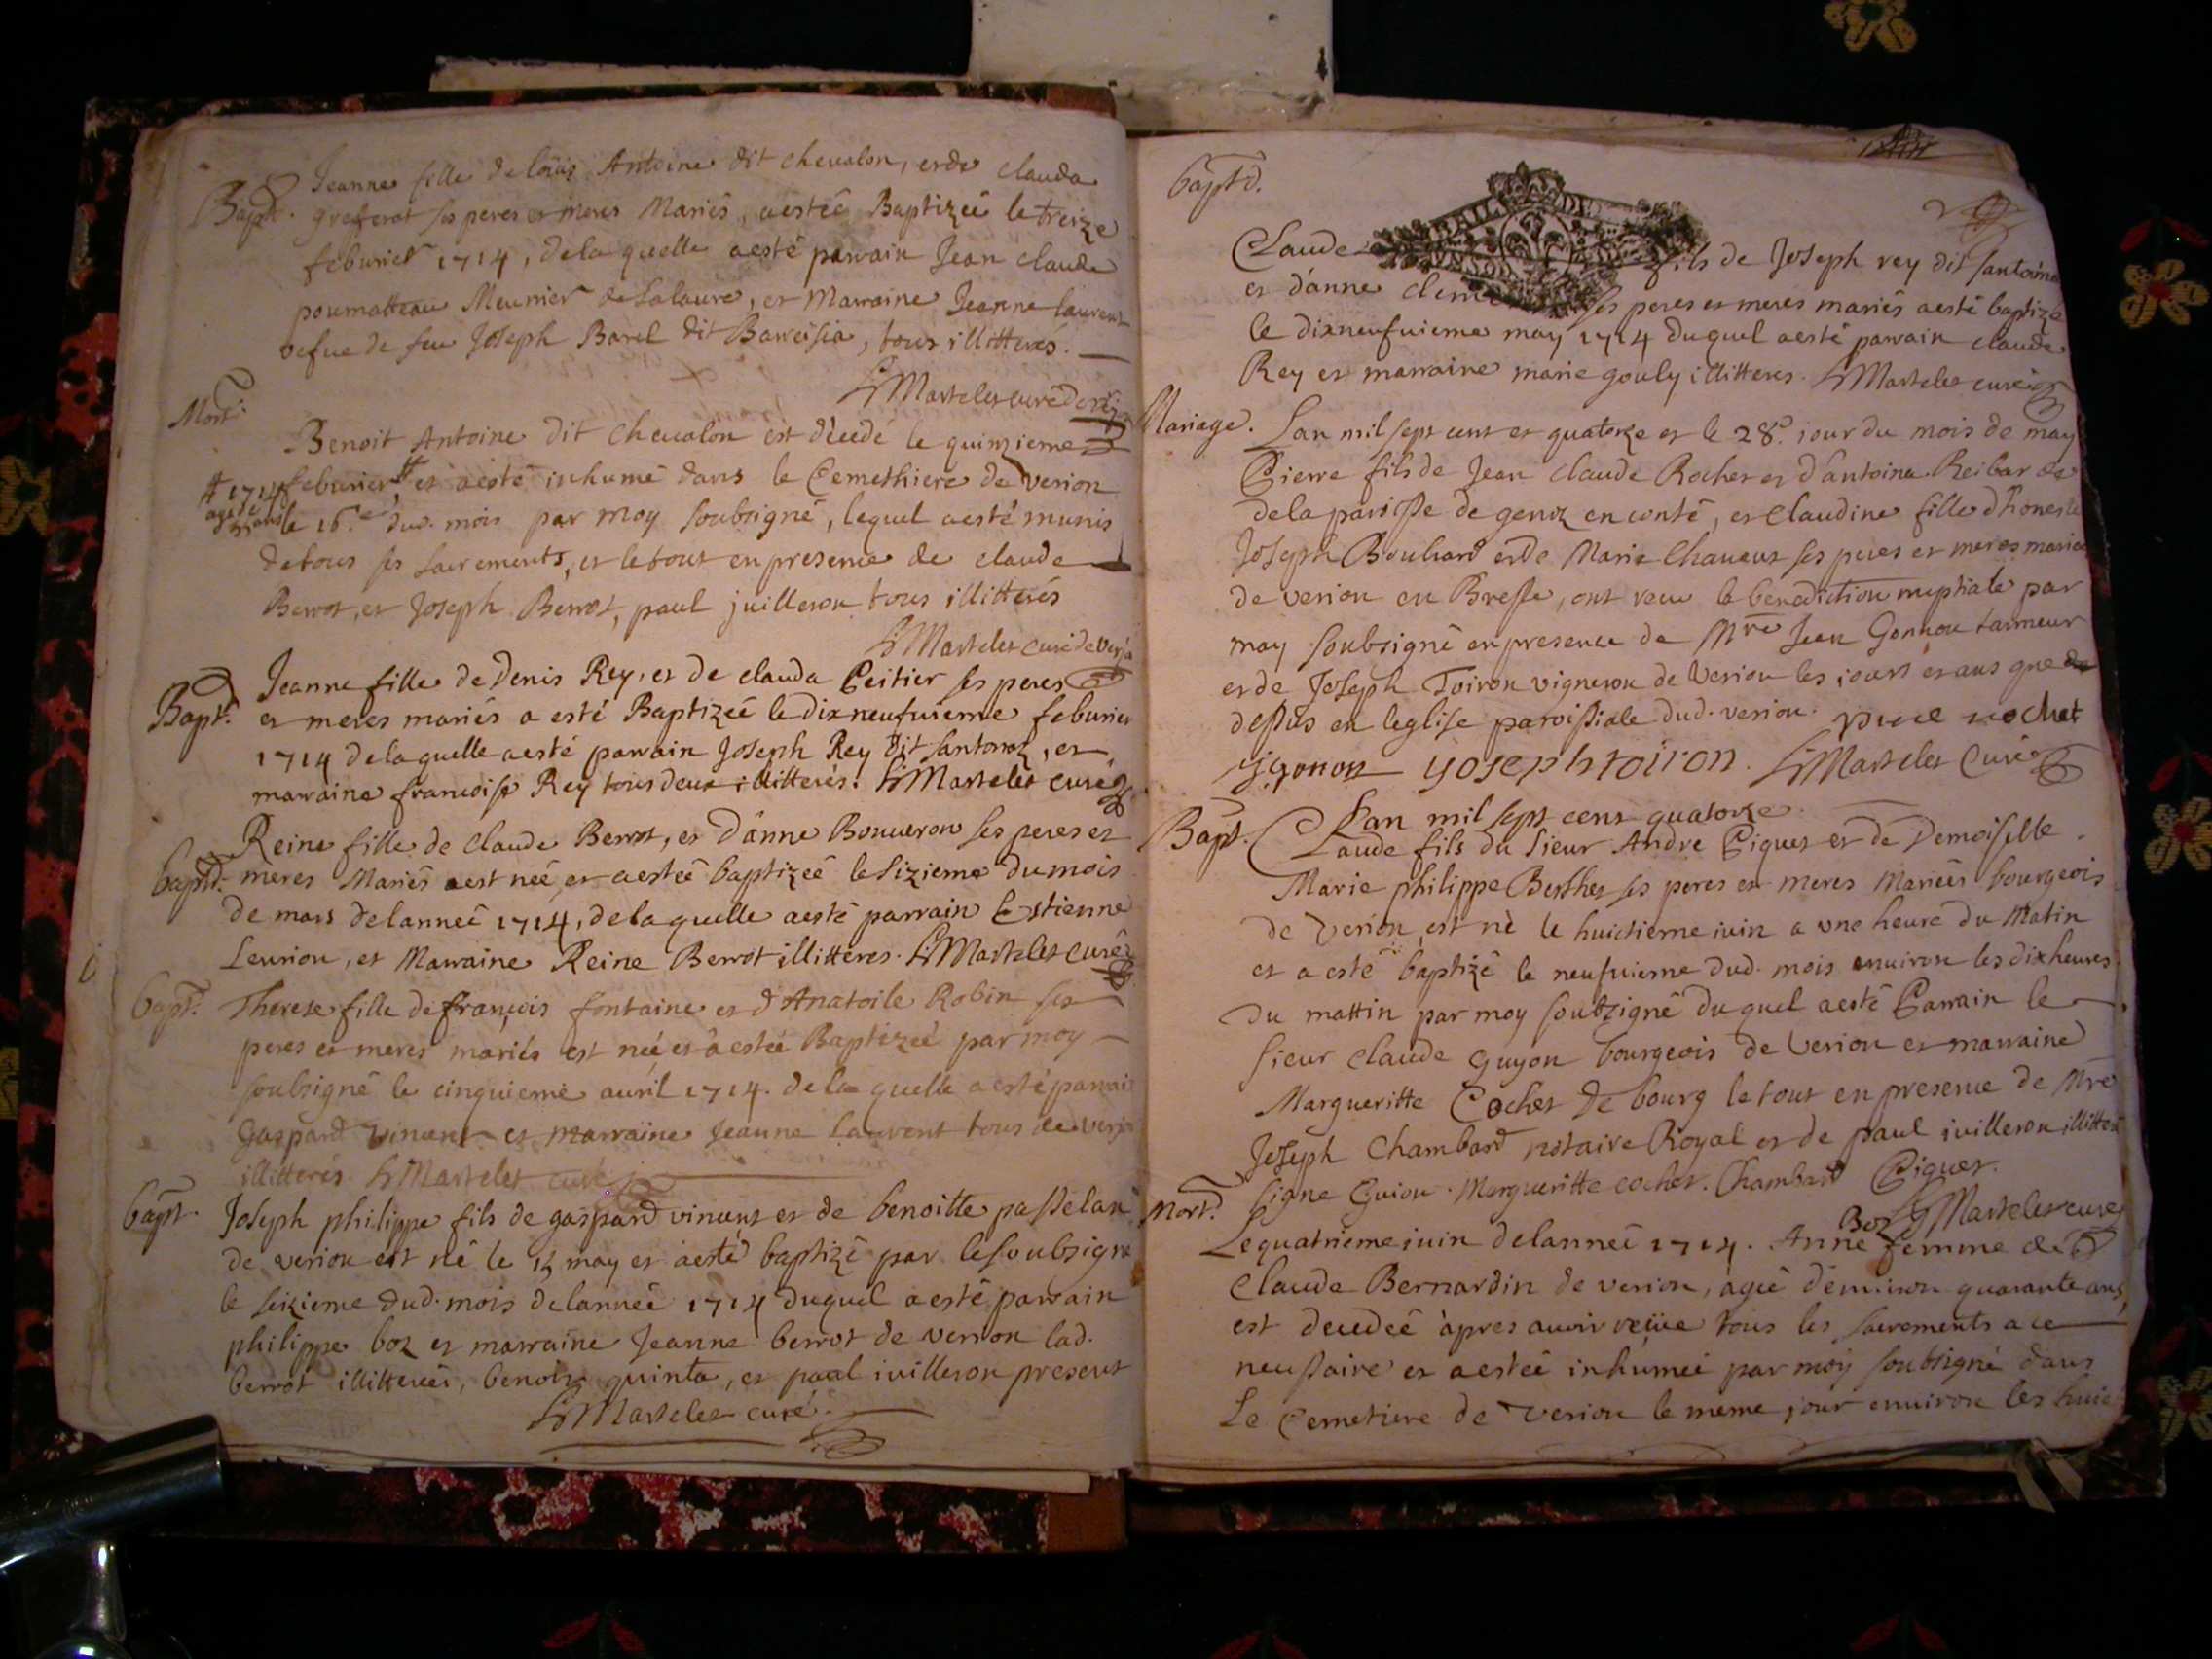 Bapt. Jeanne fille de loüis Antoine dit chevalon, et de clauda
greferat ses peres et meres Mariés, a estée Baptizeé le treize
feburier 1714, de la quelle a esté parrain Jean claude
poumatteau Meunier de Lalaure, et Marraine Jeanne laurent
vefue de feu Joseph Barel dit Bareisia, tous illitterés.
LMartelet curé de
Mort.
Benoit Antoine dit chevalon est décedé le quinzieme
feburier # et a esté inhumé dans le Cemethiere de verion
# 1714
agé de
ans
le 16.e dud. mois par moy soubsigné, lequel a esté munis
de tous ses sacrements, et le tout en presence de claude
Berrot, et Joseph Berrot, paul juilleron tous illitterés
LMartelet curé de verja
Jeanne fille de Denis Rey, et de clauda Peitier ses peres
Bapt. et meres mariés a esté Baptizeé le dix neufuieme feburier
1714 de la quelle a esté parrain Joseph Rey dit santonaz, et
marraine francoise Rey tous deux illitterés. LMartelet curé
Reine fille de Claude Berrot, et d'anne Bouueron ses peres et
bapt. meres Mariés est neé et a esteé baptizeé le sizieme du mois
de mars de lanneé 1714, de la quelle a esté parrain Estienne
Leurion, et Marraine Reine Berrot illitteres. LMartelet curé
bapt. Therese fille de francois fontaine et d'Anatoile Robin ses
peres et meres mariés est neé et a esteé Baptizeé par moy
soubsigné le cinquieme auril 1714. de la quelle a esté parrain
Gaspard vincent et marraine Jeanne Laurent tous de verja
illitterés. LMartelet curé
bapt. Joseph philippe fils de gaspard vincent et de benoitte passelan
de verion est né le 15 may et a esté baptizé par le soubsigné
le sizieme dud. mois de lanneé 1714 duquel a esté parrain
philippe boz et marraine Jeanne berrot de verion lad.
berrot illittereé, benoit quinta, et paul iuilleron present
LMartelet curé.
bapt.
Claude fils de Joseph rey dit santoina
et d'anne ses peres et meres mariés a esté baptizé
le dixneufuieme may 1714 duquel a esté parrain claude
Rey et marraine marie gouly illitteres. LMartelet curé
Mariage. Lan mil sept cent et quatorze et le 28.e iour du mois de may
Pierre fils de Jean claude Rochet et d'antoina Reibar de
de la paroisse de genoz en conté, et Claudine fille d'honeste
Joseph Bouhard et de Marie Chaneur ses peres et meres mariés
de verion en Bresse, ont receu la benediction nuptiale par
moy soubsigné en presence de Mre Jean Gonnon tanneur
et de Joseph Toiron vigneron de Verion les iours et ans que
dessus en leglise paroissiale dud. verion. piere rochet
jgonon yoseph toiron. LMartelet Curé
Bapt. Lan mil sept cent quatorze
Claude fils du sieur Andre Piquet et de Demoiselle
Marie philippe Berthet ses peres et meres Marieés bourgeois
de verion, est né le huictieme iuin a une heure du matin
et a esté baptizé le neufuieme dud. mois enuiron les dix heures
du mattin par moy soubzigné du quel a esté Parrain le
sieur claude guyon bourgeois de Verion et marraine
Margueritte Cochet de bourg le tout en presence de Mre
Joseph Chambard notaire Royal et de paul iuilleron illitteré
signe Guion. Margueritte cochet. Chambard Piquet.
Mort. Boz LMartelet curé
Le quatrieme iuin de lanneé 1714. Anne femme de
Claude Bernardin de verion, ageé d'enuiron quarante ans,
est decedeé apres auoir reçue tous les sacrements a ce
necessaire et a esteé inhumeé par moy soubsigné dans
Le Cemetiere de verion le meme jour enuiron les huict